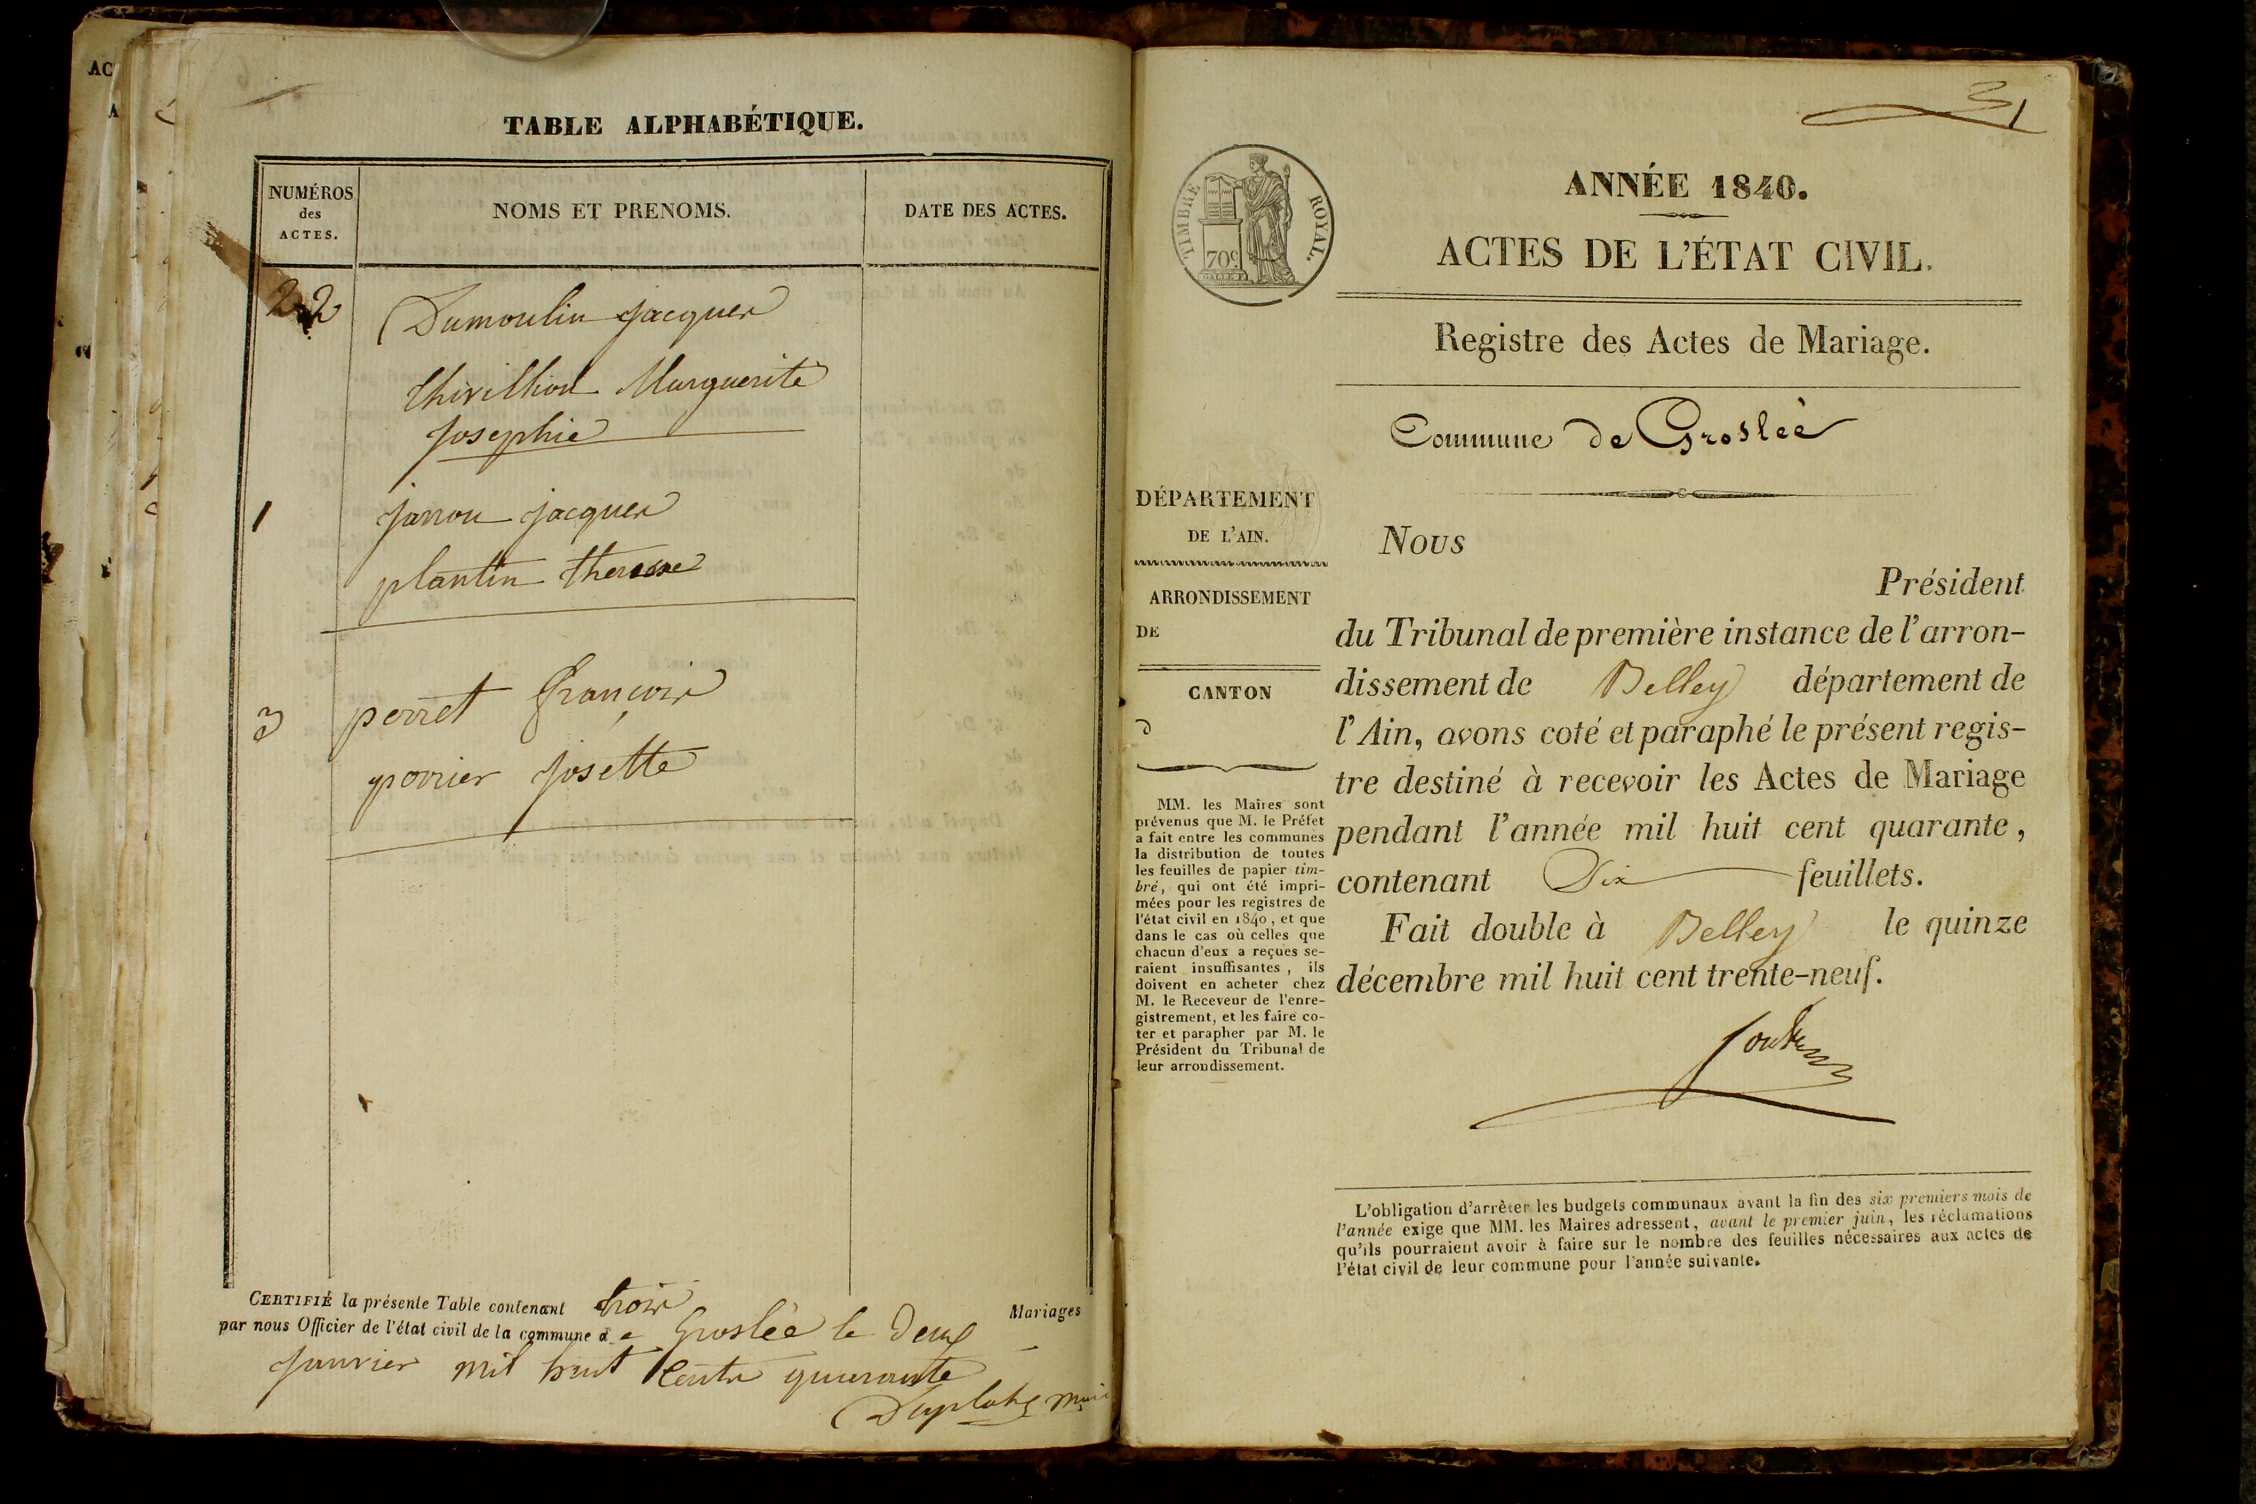 AC
A
TABLE ALPHABÉTIQUE.
NUMÉROS
des
ACTES.
NOMS ET PRENOMS.
DATE DES ACTES.
2
Dumoulin jacques
thirillion Marguerite
Josephie
1
jannon jacques
plantin therese
3
perret françois
poirier josette
CERTIFIÉ la présente Table contenant trois Mariages
par nous Officier de l'état civil de la commune de Groslée le deux
janvier mil huit cents quarante
maire
31
TIMBRE ROYAL.
70c
ANNÉE 1840.
ACTES DE L'ÉTAT CIVIL.
Registre des Actes de Mariage.
Commune de Groslée
DÉPARTEMENT
DE L'AIN.
ARRONDISSEMENT
DE
CANTON
d
MM. les Maires sont
prévenus que M. le Préfet
a fait entre les communes
la distribution de toutes
les feuilles de papier tim-
bré, qui ont été impri-
mées pour les registres de
l'état civil en 1840, et que
dans le cas où celles que
chacun d'eux a reçues se-
raient insuffisantes, ils
doivent en acheter chez
M. le Receveur de l'enre-
gistrement, et les faire co-
ter et parapher par M. le
Président du Tribunal de
leur arrondissement.
Nous
Président
du Tribunal de première instance de l'arron-
dissement de Belley département de
l'Ain, avons coté et paraphé le présent regis-
tre destiné à recevoir les Actes de Mariage
pendant l'année mil huit cent quarante,
contenant Six feuillets.
Fait double à Belley le quinze
décembre mil huit cent trente-neuf.
L'obligation d'arrêter les budgets communaux avant la fin des six premiers mois de
l'année exige que MM. les Maires adressent, avant le premier juin, les réclamations
qu'ils pourraient avoir à faire sur le nombre des feuilles nécessaires aux actes de
l'état civil de leur commune pour l'année suivante.